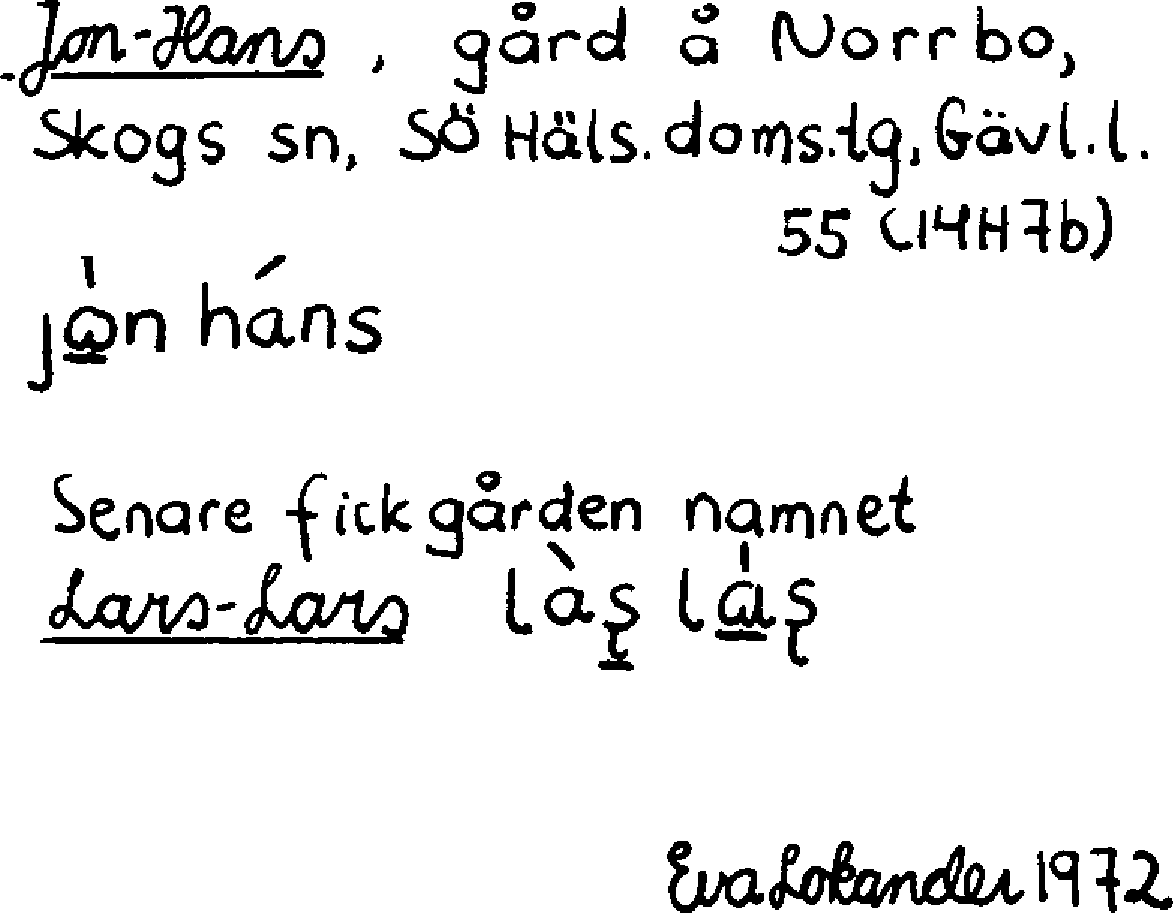 Jon-Hans, gård å Norrbo,
Skogs sn, SÖ Häls.doms.tg, Gävl.l.
55 (14H7b)
jὼ̱n háns
Senare fick gården namnet
Lars-Lars làʂ̱ lɑ̱̍ʂ
Eva Lokander 1972